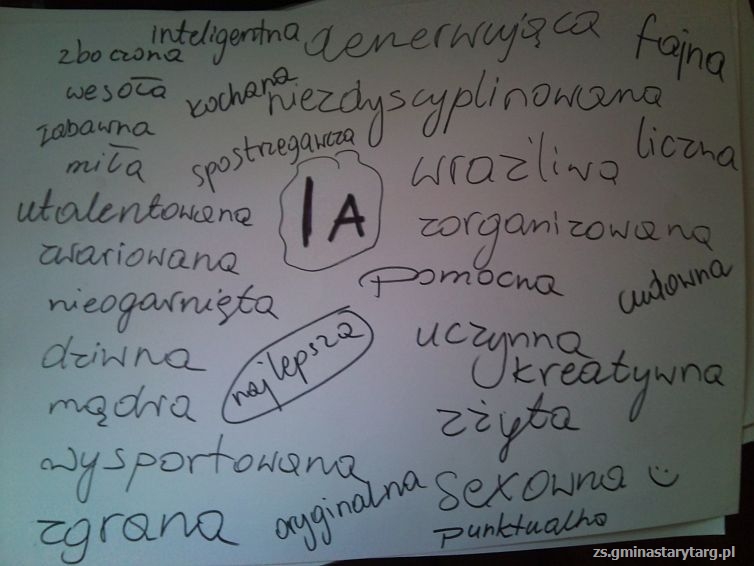 inteligentna denerwująca fajna
zboczona
wesoła kochana niezdyscyplinowana
zabawna spostrzegawcza liczna
miła wrażliwa
utalentowana 1A zorganizowana
zwariowana pomocna cudowna
nieogarnięta
dziwna najlepsza uczynna
kreatywna
mądra zżyta
wysportowana
oryginalna sexowna
zgrana punktualna
zs.gminastarytarg.pl